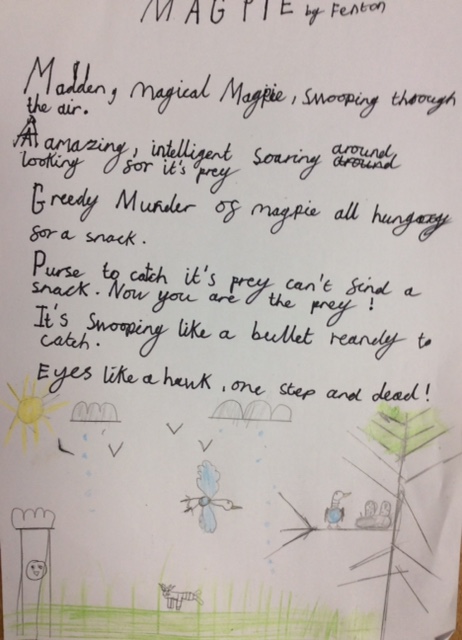 MAGPIE by Fenton
Madden, magical Magpie, swooping through
the air.
A amazing, intelligent soaring around
looking for it's prey
Greedy Murder of magpie all hungry
for a snack.
Purse to catch it's prey can't find a
snack. Now you are the prey!
It's swooping like a bullet reandy to
catch.
Eyes like a hawk, one step and dead!